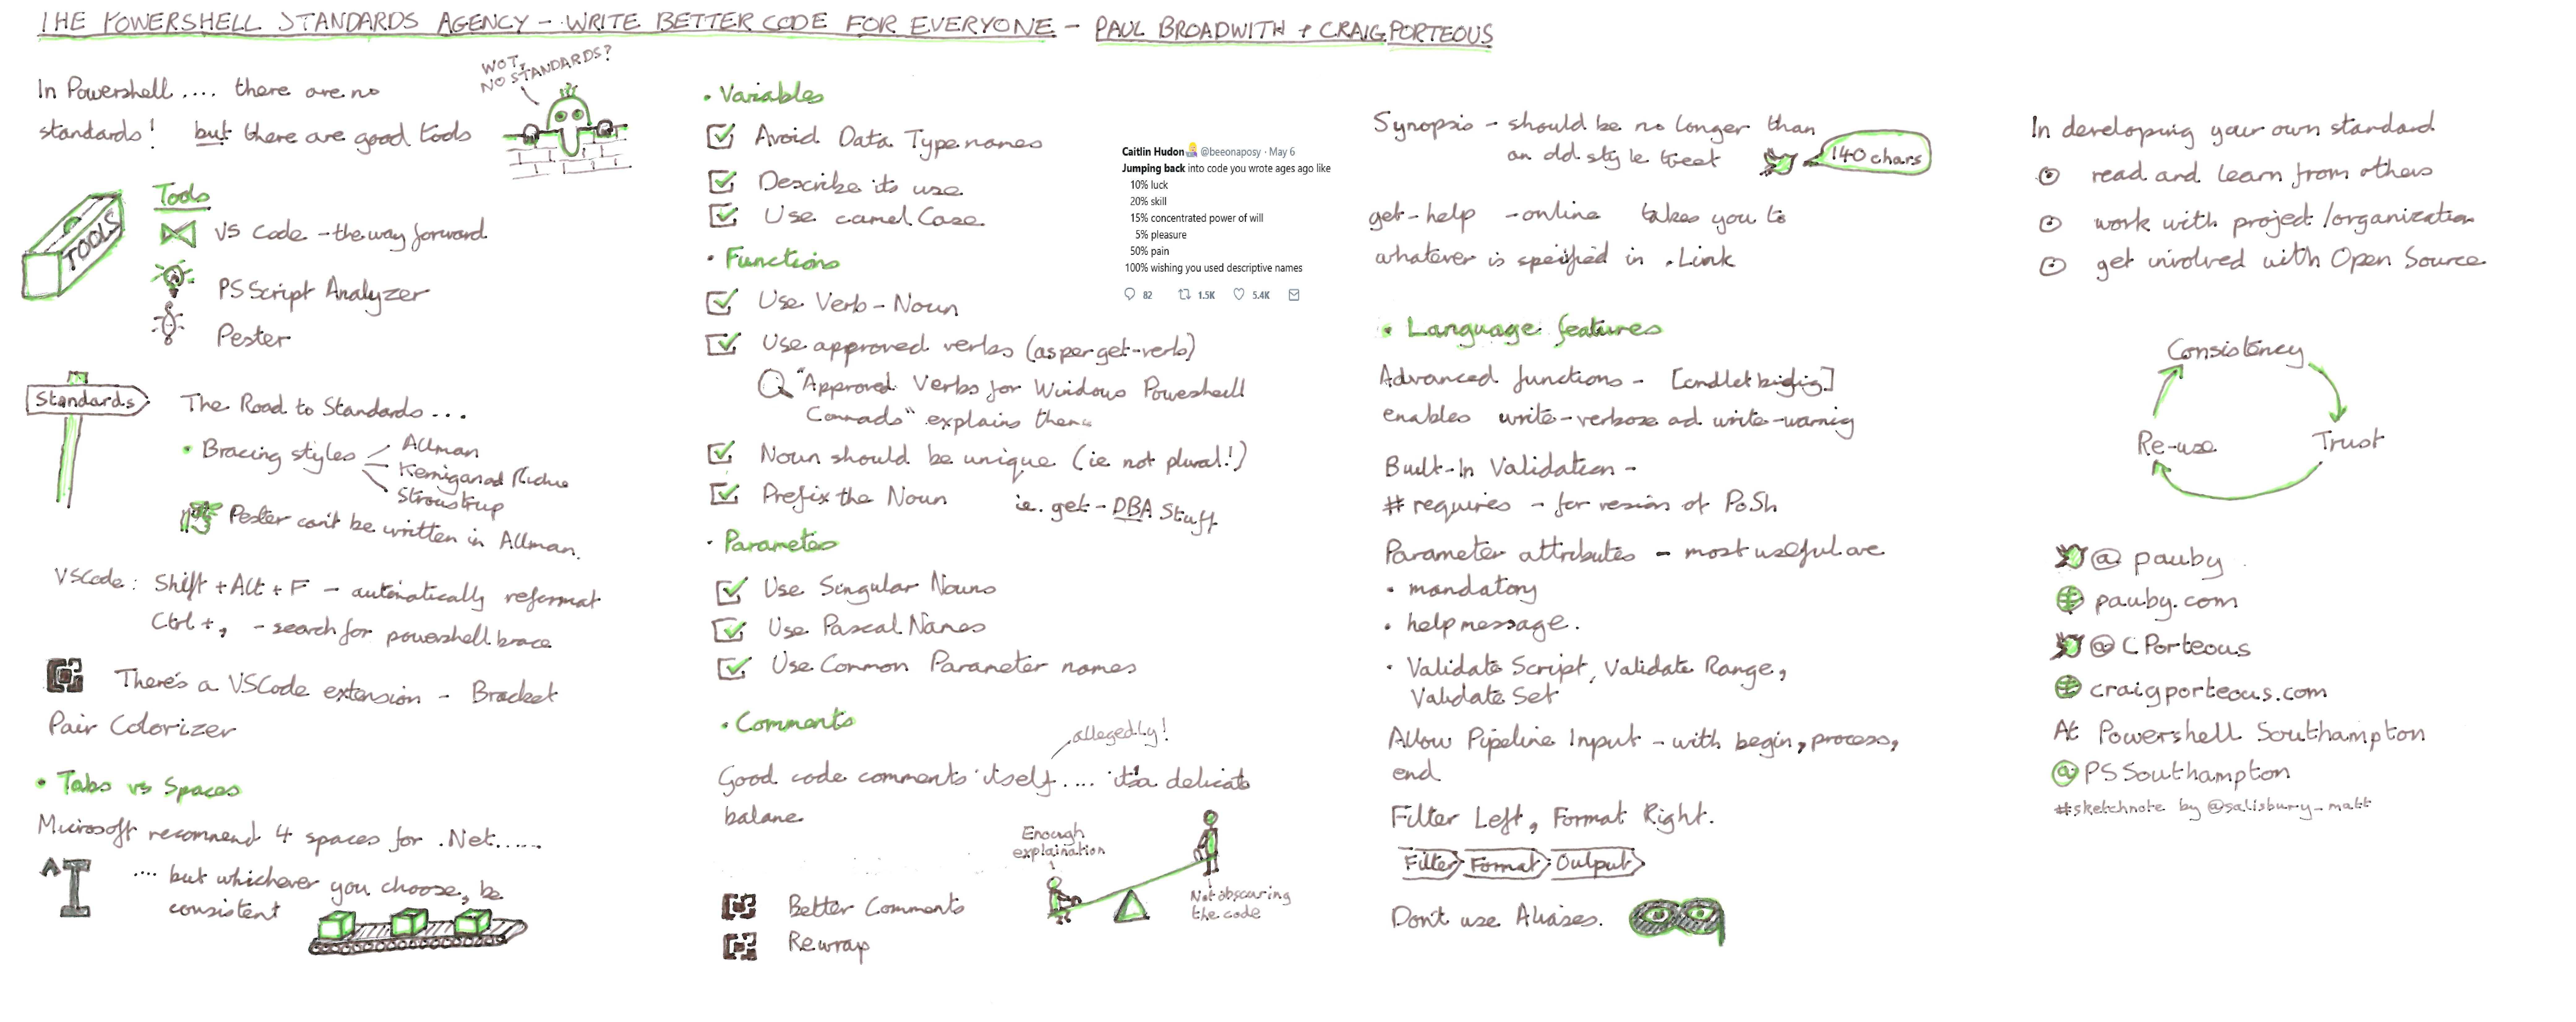 THE POWERSHELL STANDARDS AGENCY - WRITE BETTER CODE FOR EVERYONE - PAUL BROADWITH + CRAIG PORTEOUS
In Powershell.... there are no
standards! but there are good tools
WOT,
NO STANDARDS?
TOOLS
Tools
VS Code - the way forward
PS Script Analyzer
Pester
Standards
The Road to Standards...
• Bracing styles
Allman
Kernigan ad Richie
Stroustrup
Pester can't be written in Allman.
VSCode: Shift + Alt + F - automatically reformat
Ctrl + , - search for powershell brace
There's a VSCode extension - Bracket
Pair Colorizer
• Tabs vs Spaces
Microsoft recommend 4 spaces for .Net.....
.... but whichever you choose, be
consistent
• Variables
Avoid Data Type names
Describe its use
Use camel Case
• Functions
Use Verb - Noun
Use approved verbs (as per get-verb)
"Approved Verbs for Windows Powershell
Commads" explains them
Noun should be unique (ie not plural!)
Prefix the Noun ie. get - DBA Stuff
• Parametes
Use Singular Nouns
Use Pascal Names
Use Common Parameter names
• Comments
allegedly!
Good code comments itself.... it's a delicate
balane
Enough
explaination
Not obscuring
the code
Better Comments
Rewrap
Caitlin Hudon @beeonaposy · May 6
Jumping back into code you wrote ages ago like
10% luck
20% skill
15% concentrated power of will
5% pleasure
50% pain
100% wishing you used descriptive names
82 1.5K 5.4K
Synopsis - should be no longer than
an old style tweet
140 chars
get-help -online takes you to
whatever is specified in .Link
• Language features
Advanced functions - [cmdletbidig]
enables write-verbose ad write-warnig
Built-In Validation -
# requires - for version of PoSh
Parameter attributes - most useful are
• mandatory
• helpmessage.
• Validate Script, Validate Range,
Validate Set
Allow Pipeline Input - with begin, process,
end
Filter Left, Format Right.
Filter Format Output
Don't use Aliases.
In developing your own standard
read and learn from others
work with project/organization
get involved with Open Source
Consistency
Trust
Re-use
@ pauby
pauby.com
@ CPorteous
craigporteous.com
At Powershell Southampton
@PSSouthampton
#sketchnote by @salisbury_matt